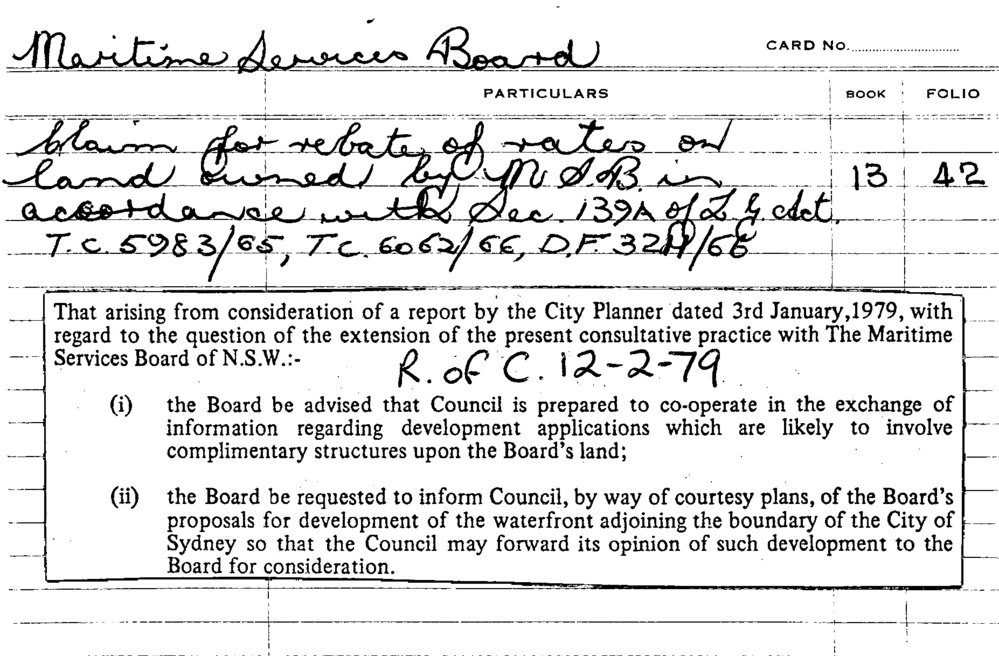 Maritime Services Board
CARD No.
PARTICULARS BOOK FOLIO
Claim for rebate of rates on
land owned by M.S.B. in 13 42
accordance with Sec. 139A of L G Act.
T.C. 5983/65, T.C. 6062/66, D.F. 32H/66
That arising from consideration of a report by the City Planner dated 3rd January,1979, with
regard to the question of the extension of the present consultative practice with The Maritime
Services Board of N.S.W.:-
R. of C. 12-2-79
(i) the Board be advised that Council is prepared to co-operate in the exchange of
information regarding development applications which are likely to involve
complimentary structures upon the Board's land;
(ii) the Board be requested to inform Council, by way of courtesy plans, of the Board's
proposals for development of the waterfront adjoining the boundary of the City of
Sydney so that the Council may forward its opinion of such development to the
Board for consideration.